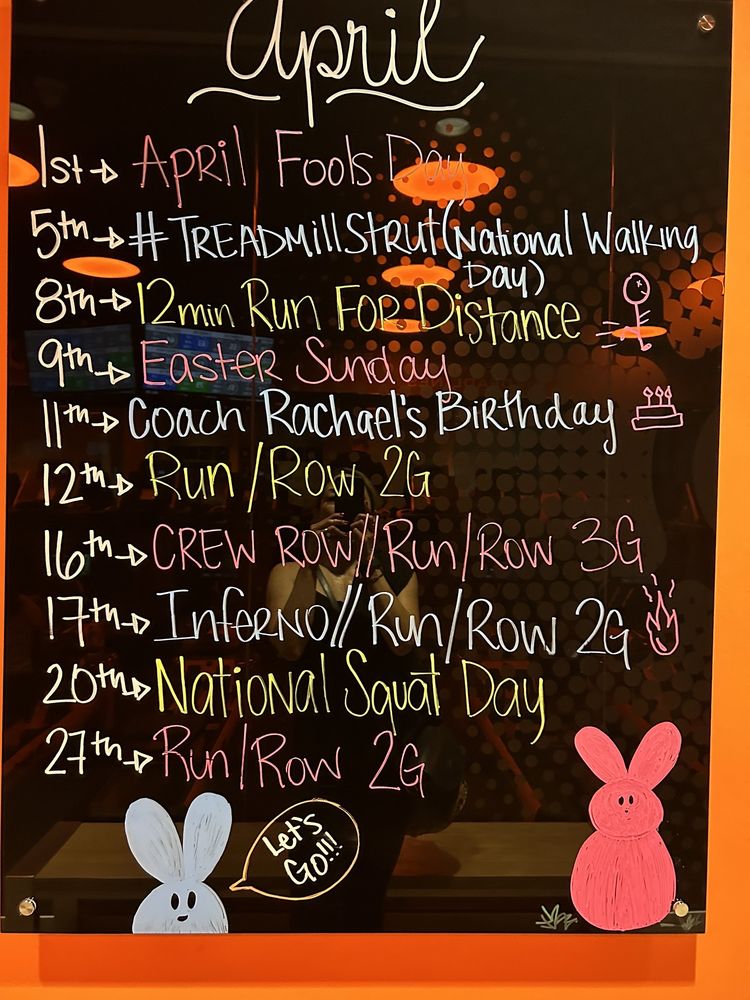 April
1st → April Fools Day
5th → #TREADMILLStrut(National Walking
Day)
8th → 12min Run For Distance
9th → Easter Sunday
11th → Coach Rachael's Birthday
12th → Run/Row 2G
16th → CREW ROW//Run/Row 3G
17th → Inferno//Run/Row 2G
20th → National Squat Day
27th → Run/Row 2G
Let's
Go!!!